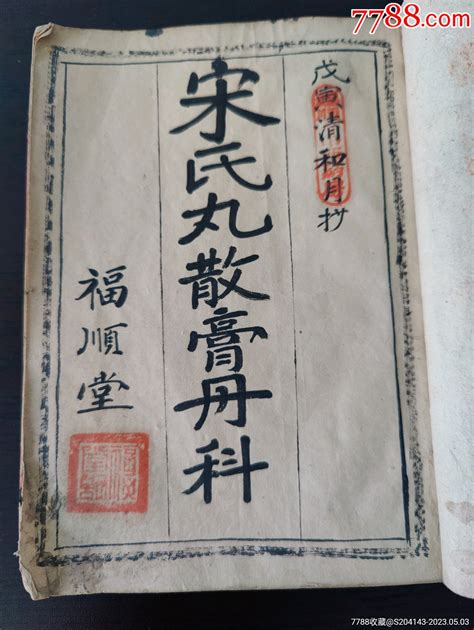 7788.com
戊寅清和月抄
宋氏丸散膏丹科
福順堂
7788收藏@S204143-2023.05.03